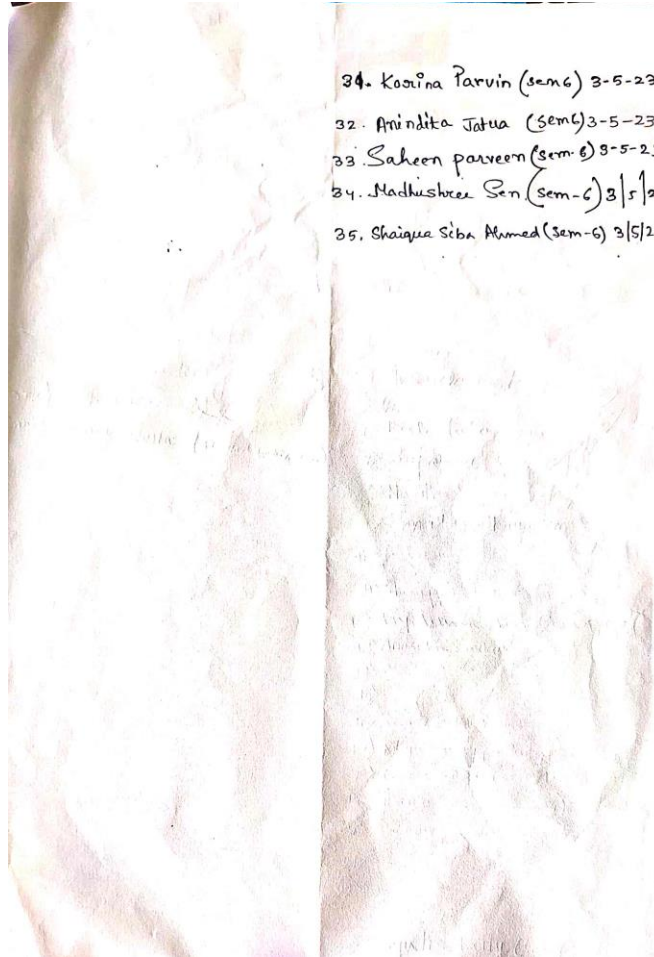 31. Korina Parvin (sem6) 3-5-23
32. Anindita Jatua (Sem6) 3-5-23
33. Saheen parveen (sem-6) 3-5-2
34. Madhushree Sen (sem-6) 3|5|2
35. Shaiqua Siba Ahmed (Sem-6) 3|5|2